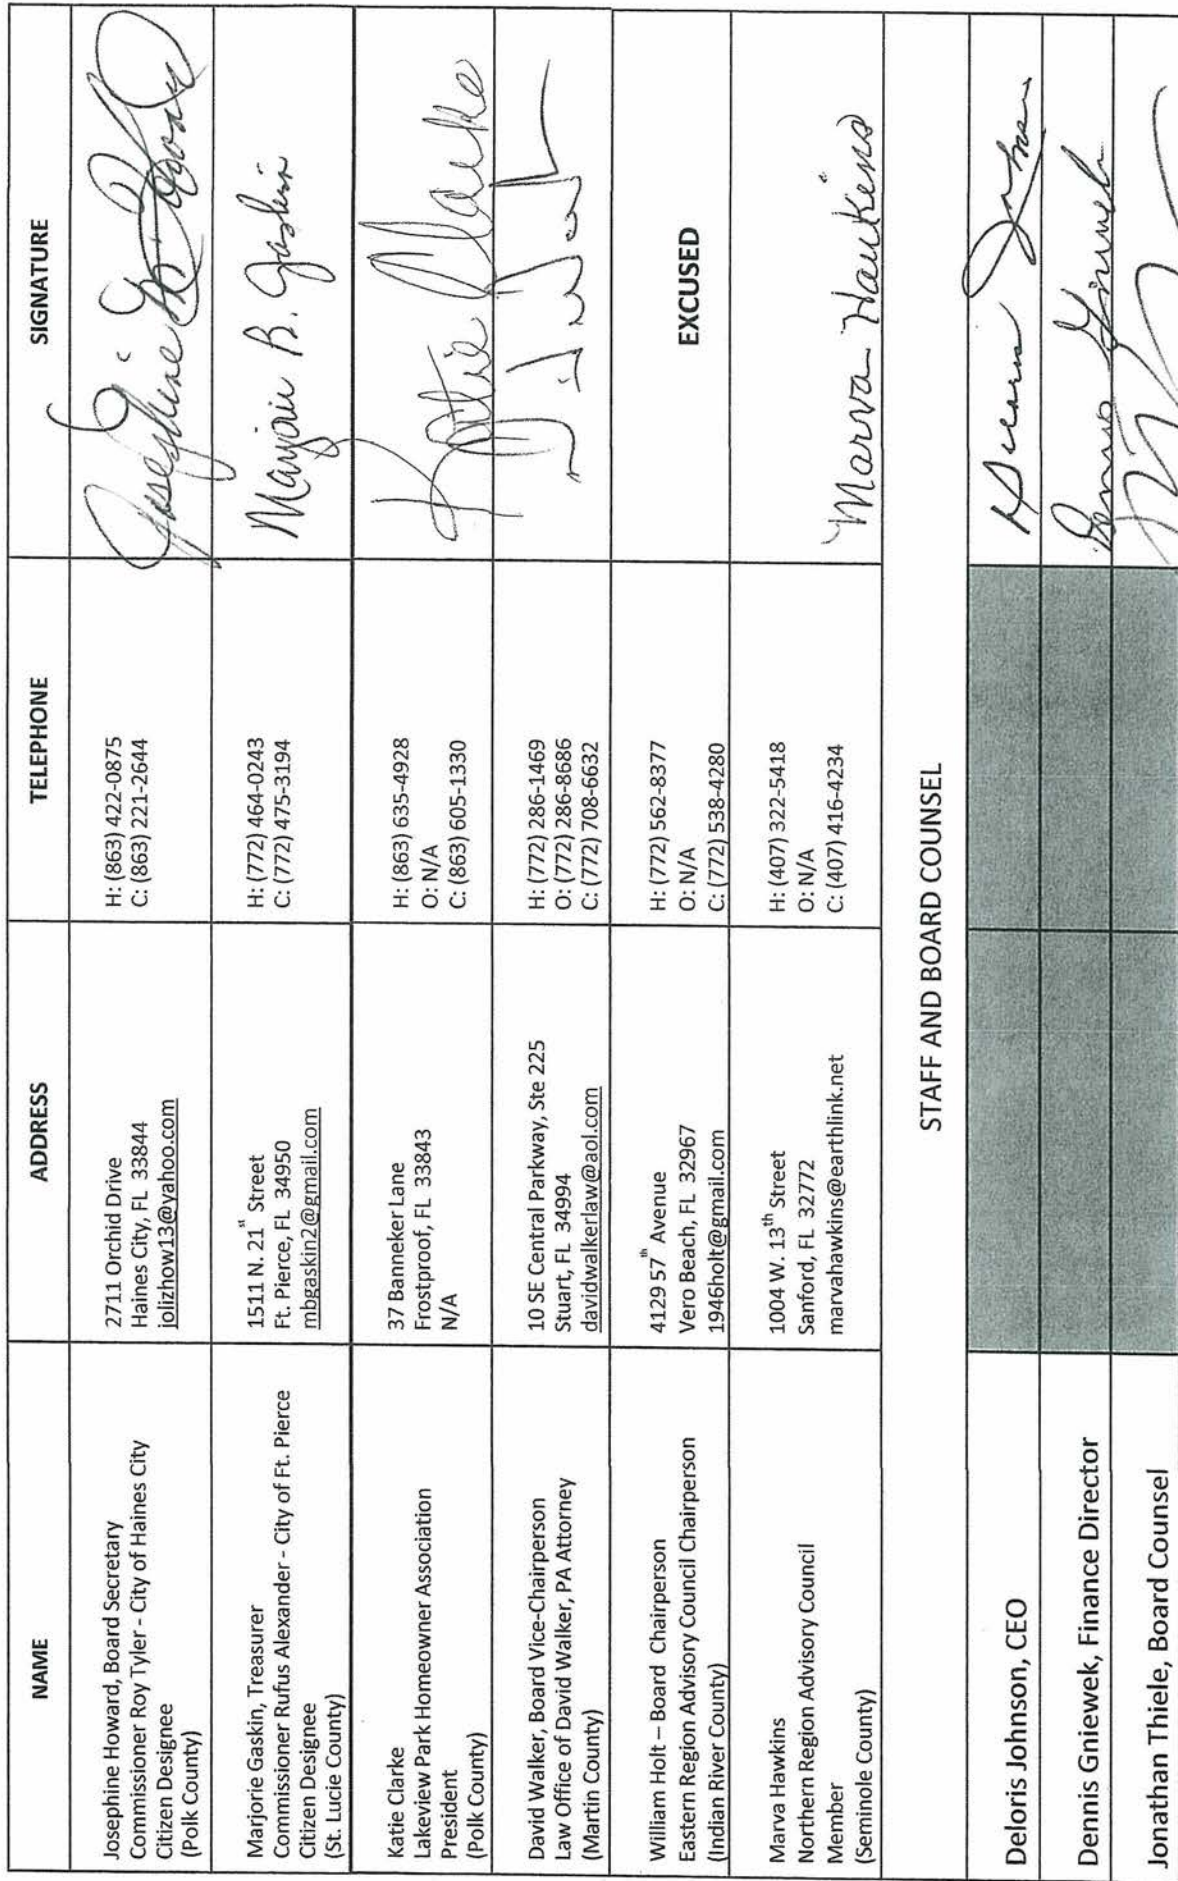 NAME
ADDRESS
TELEPHONE
SIGNATURE
Josephine Howard, Board Secretary
Commissioner Roy Tyler - City of Haines City
Citizen Designee
(Polk County)
2711 Orchid Drive
Haines City, FL 33844
jolizhow13@yahoo.com
H: (863) 422-0875
C: (863) 221-2644
Josephine
Marjorie Gaskin, Treasurer
Commissioner Rufus Alexander - City of Ft. Pierce
Citizen Designee
(St. Lucie County)
1511 N. 21st Street
Ft. Pierce, FL 34950
mbgaskin2@gmail.com
H: (772) 464-0243
C: (772) 475-3194
Marjorie B. Gaskin
Katie Clarke
Lakeview Park Homeowner Association
President
(Polk County)
37 Banneker Lane
Frostproof, FL 33843
N/A
H: (863) 635-4928
O: N/A
C: (863) 605-1330
Katie Clarke
David Walker, Board Vice-Chairperson
Law Office of David Walker, PA Attorney
(Martin County)
10 SE Central Parkway, Ste 225
Stuart, FL 34994
davidwalkerlaw@aol.com
H: (772) 286-1469
O: (772) 286-8686
C: (772) 708-6632
William Holt – Board Chairperson
Eastern Region Advisory Council Chairperson
(Indian River County)
4129 57th Avenue
Vero Beach, FL 32967
1946holt@gmail.com
H: (772) 562-8377
O: N/A
C: (772) 538-4280
EXCUSED
Marva Hawkins
Northern Region Advisory Council
Member
(Seminole County)
1004 W. 13th Street
Sanford, FL 32772
marvahawkins@earthlink.net
H: (407) 322-5418
O: N/A
C: (407) 416-4234
Marva Hawkins
STAFF AND BOARD COUNSEL
Deloris Johnson, CEO
Dennis Gniewek, Finance Director
Jonathan Thiele, Board Counsel